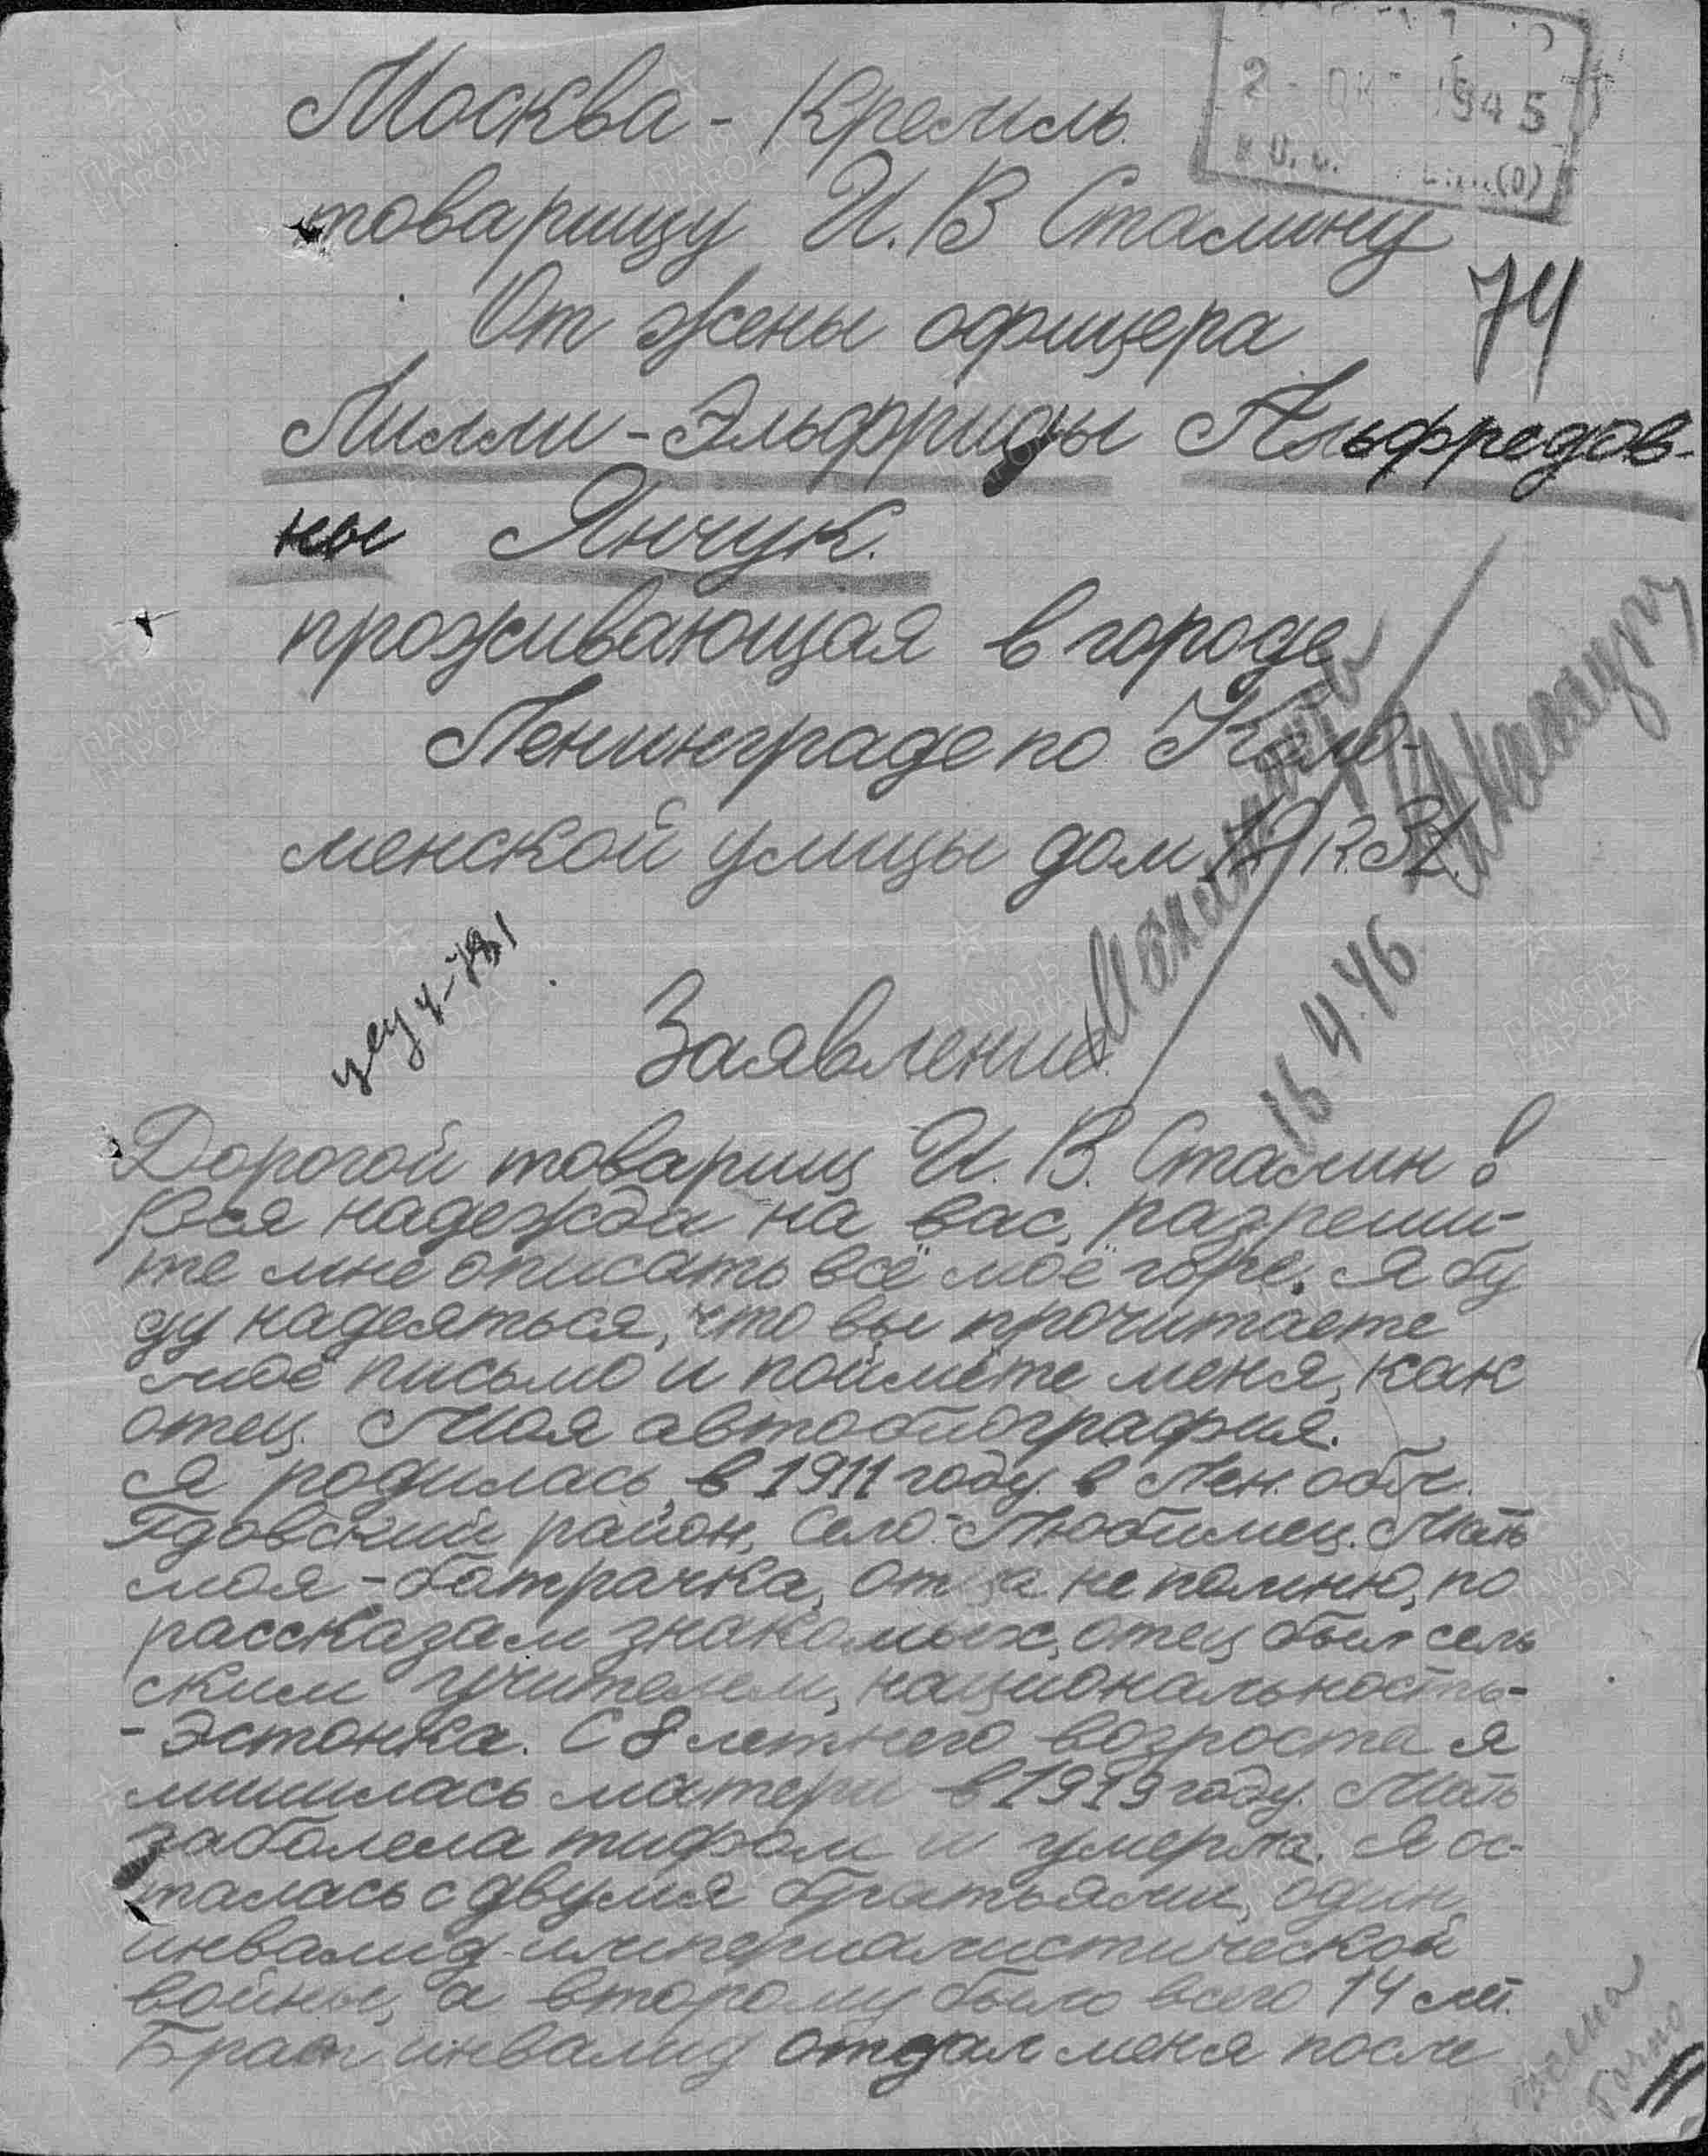 2 ОК 1945
(О)
Москва - Кремль
товарищу И. В Сталину
74
От жены офицера
Лилли - Эльфриды Альфредов-
ны Янчук.
проживающая в городе
Ленинграде по Коло-
менской улицы дом
16 4.46
Заявление
Дорогой товарищ И. В. Сталин!
Вся надежда на вас, разреши-
те мне описать всё моё горе. Я бу
ду надеяться, что вы прочитаете
моё письмо и поймёте меня, как
отец. Моя автобиография.
Я родилась в 1911 году в Лен. обл.
Гдовский район, Село-Любимец. Мать
моя - батрачка, отца не помню, по
рассказам знакомых, отец был сель
ским учителем, национальность-
- Эстонка. С 8 летнего возроста я
лишилась матери в 1919 году. Мать
заболела тифом и умерла. Я ос-
талась с двумя братьями, один,
инвалид империалистической
войны, а второму было всего 14 лет.
Брат инвалид отдал меня после
ПАМЯТЬ
НАРОДА